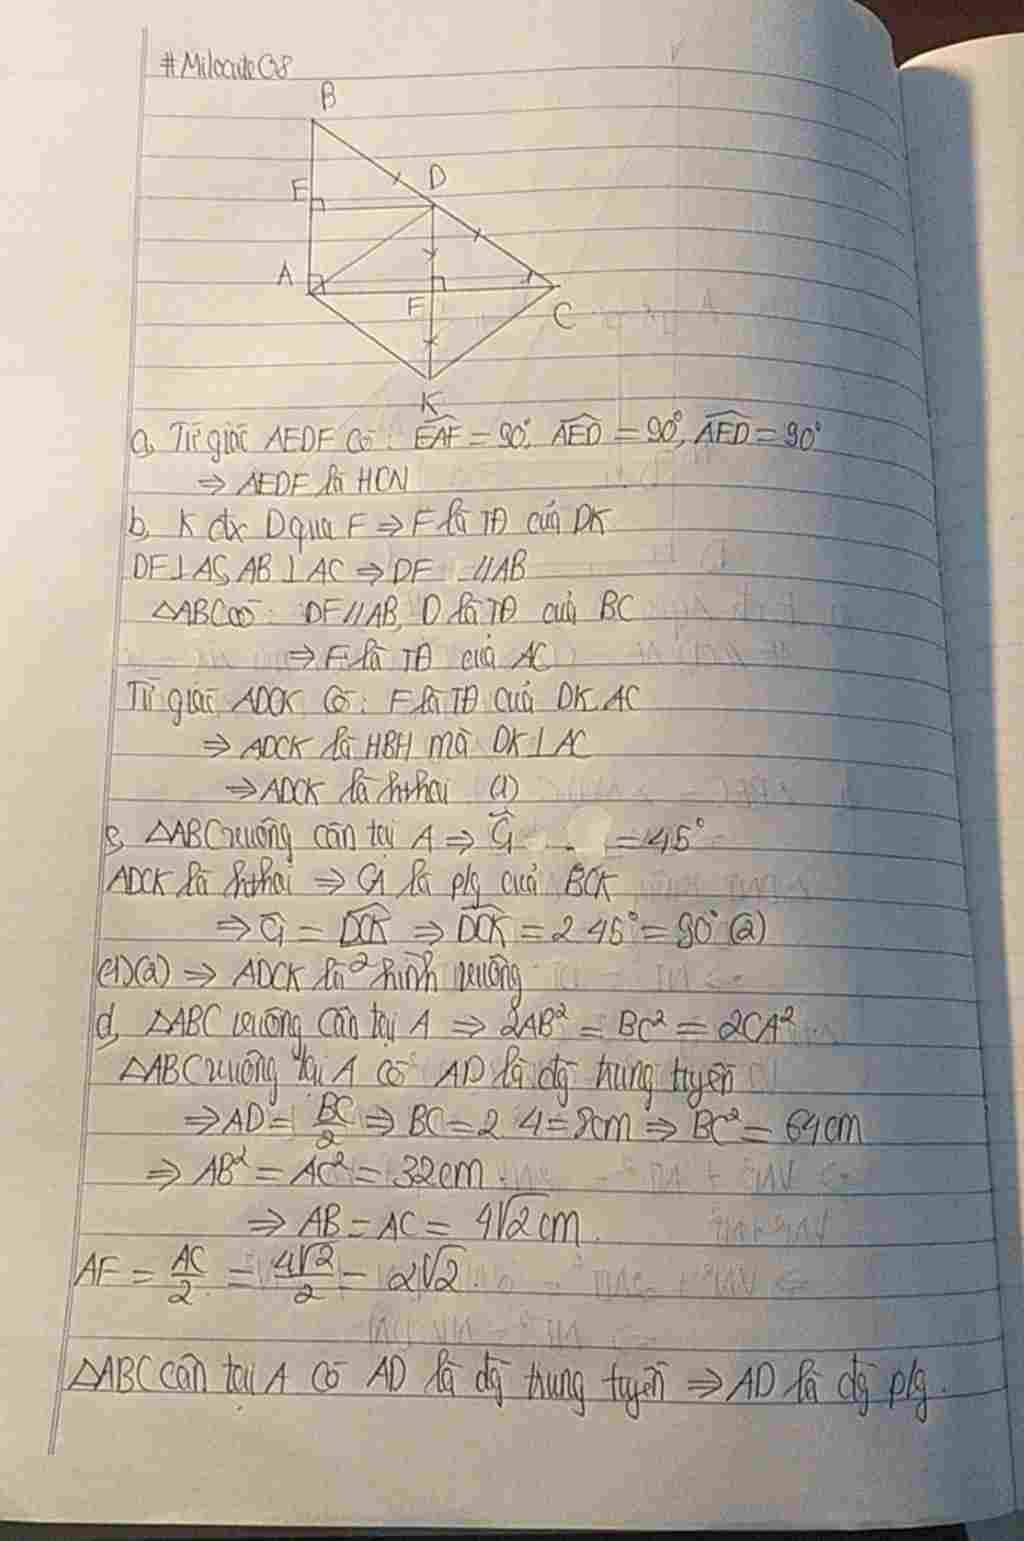 #Milocute08
B
E
D
A
F
C
K
a, Tứ giác AEDF có: EAF = 90°, AED = 90°, AFD = 90°
⇒ AEDF là HCN
b, K đx D qua F ⇒ F là TĐ của DK
DF⊥AC, AB⊥AC ⇒ DF //AB
△ABC có: DF//AB, D là TĐ của BC
⇒ F là TĐ của AC
Tứ giác ADCK có: F là TĐ của DK, AC
⇒ ADCK là HBH mà DK⊥AC
⇒ ADCK là hthoi (1)
c, △ABC vuông cân tại A ⇒ = 45°
ADCK là hthoi ⇒ là p/g của
⇒ = DCK ⇒ DCK = 2 45° = 90° (2)
(1)(2) ⇒ ADCK là hình vuông
d, △ABC vuông cân tại A ⇒ 2AB² = BC² = 2CA²
△ABC vuông tại A có AD là đg trung tuyến
⇒ AD = BC/2 ⇒ BC = 2 4 = 8cm ⇒ BC² = 64cm
⇒ AB² = AC² = 32cm
⇒ AB = AC = 4√2 cm.
AF = AC/2 = 4√2/2 = 2√2
△ABC cân tại A có AD là đg trung tuyến ⇒ AD là đg p/g.